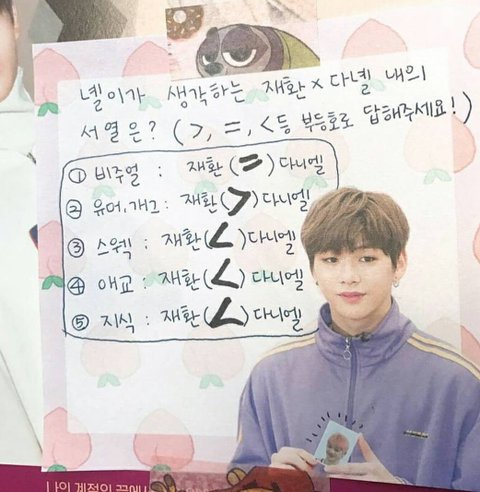 녤이가 생각하는 재환×다녤 내의
서열은? (>, =, <등 부등호로 답해주세요!)
① 비주얼 : 재환(=)다니엘
② 유머,개그: 재환(>)다니엘
③ 스웩 : 재환(<)다니엘
④ 애교 : 재환(<)다니엘
⑤ 지식 : 재환(<)다니엘
나의 계절의 끝에